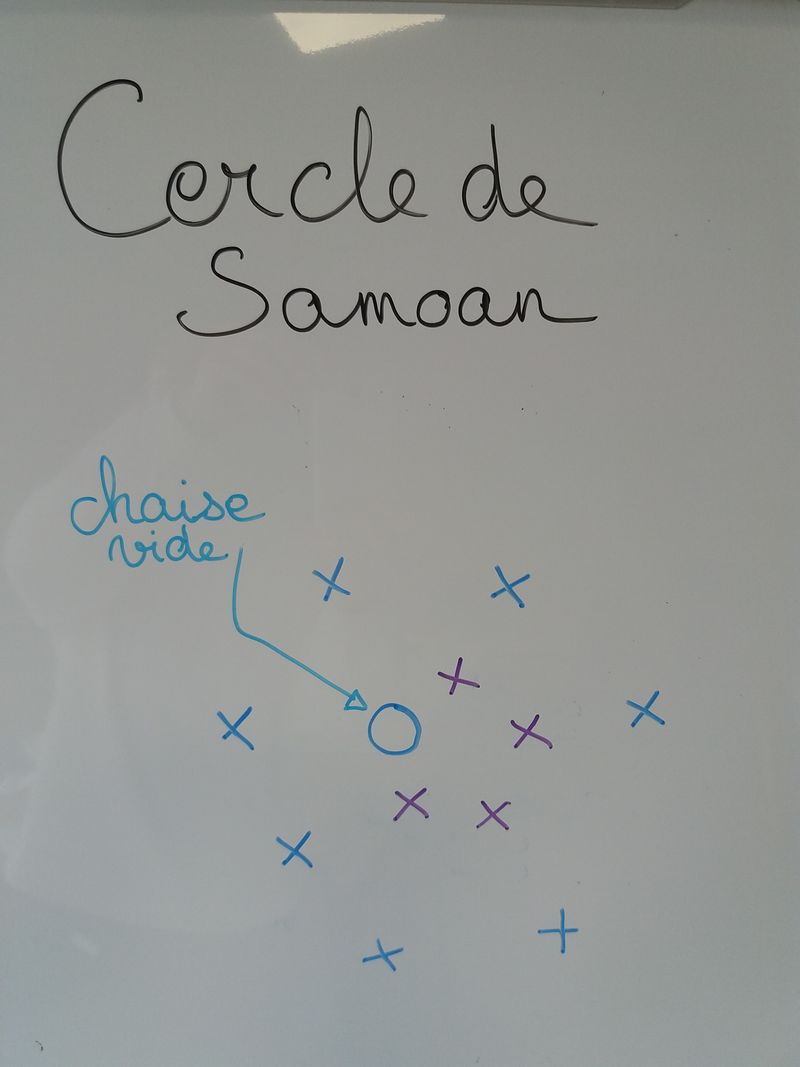 Cercle de
Samoan
chaise
vide